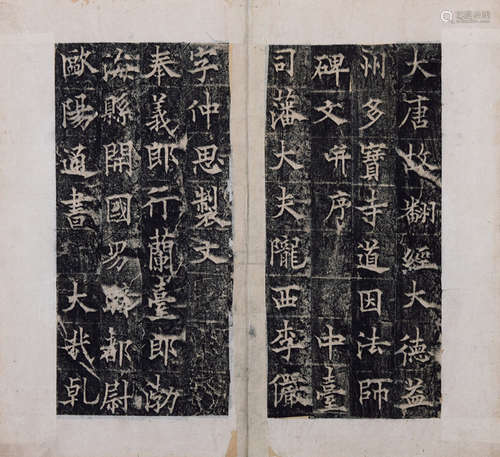 大唐故翻經大德益
州多寶寺道因法師
碑文并序　中臺
司藩大夫隴西李儼
字仲思製文
奉義郎行蘭臺郎渤
海縣開國男 都尉
歐陽通書　大哉乹